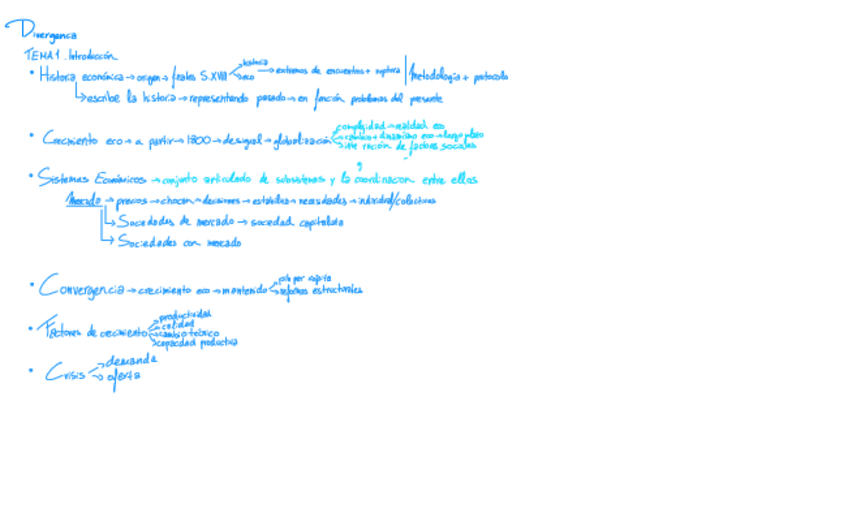 Divergencia
TEMA 1. Introducción
• Historia económica → origen → finales S.XVIII
historia
eco
→ extremos de encuentros + ruptura | Metodología + protocolo
↳ escribe la historia → representando pasado → en función problemas del presente
• Crecimiento eco → a partir → 1800 → desigual → globalización
complejidad → realidad eco
cambio + dinamismo eco → largo plazo
inte ración de factores sociales
• Sistemas Económicos → conjunto articulado de subsistemas y la coordinación entre ellas
Mercado → precios → chocan → decisiones → establece → necesidades → individual/colectivas
↳ Sociedades de mercado → sociedad capitalista
↳ Sociedades con mercado
• Convergencia → crecimiento eco → mantenido
pib per capita
reformas estructurales
• Factores de crecimiento
productividad
calidad
cambio técnico
capacidad productiva
• Crisis
→ demanda
→ oferta